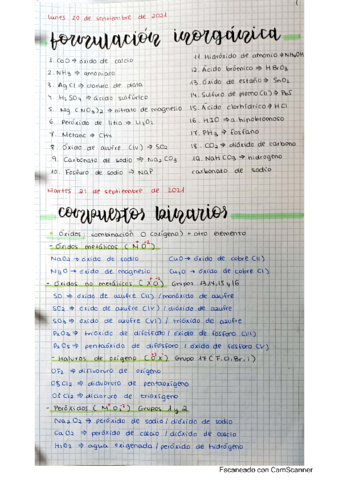 lunes 20 de septiembre de 2021
formulación inorgánica
1. CaO → óxido de calcio
2. NH₃ → amoniaco
3. AgCl → cloruro de plata
4. H₂SO₄ → ácido sulfúrico
5. Mg (NO₃)₂ → nitrato de magnesio
6. Peróxido de litio → Li₂O₂
7. Metano → CH₄
8. Óxido de azufre (IV) → SO₂
9. Carbonato de sodio → Na₂CO₃
10. Fosfuro de sodio → Na₃P
11. Hidróxido de amonio → NH₄OH
12. Ácido brómico → HBrO₃
13. Óxido de estaño → SnO₂
14. Sulfuro de plomo (II) → PbS
15. Ácido clorhídrico → HCl
16. H₂O → a.
17. PH₃ → fosfano
18. CO₂ → dióxido de carbono
19. NaHCO₃ → hidrógeno
carbonato de sodio
Martes 21 de septiembre de 2021
compuestos binarios
+ Óxidos (combinación O (oxígeno) + otro elemento
- Óxidos metálicos
Na₂O → óxido de sodio
CuO → óxido de cobre (II)
MgO → óxido de magnesio
Cu₂O → óxido de cobre (I)
- Óxidos no metálicos Grupos 13, 14, 15 y 16
SO → óxido de azufre (II) / monóxido de azufre
SO₂ → óxido de azufre (IV) / dióxido de azufre
SO₃ → óxido de azufre (VI) / trióxido de azufre
P₂O₃ → trióxido de difósforo / óxido de fósforo (III)
P₂O₅ → pentaóxido de difósforo / óxido de fósforo (V)
- Haluros de oxígeno Grupo 17 (F, Cl, Br, I)
OF₂ → difluoruro de oxígeno
O₅Cl₂ → dicloruro de pentaoxígeno
O₃Cl₂ → dicloruro de trioxígeno
- Peróxidos Grupos 1 y 2
Na₂O₂ → peróxido de sodio / dióxido de sodio
CaO₂ → peróxido de calcio / dióxido de calcio
H₂O₂ → agua oxigenada / peróxido de hidrógeno
Escaneado con CamScanner